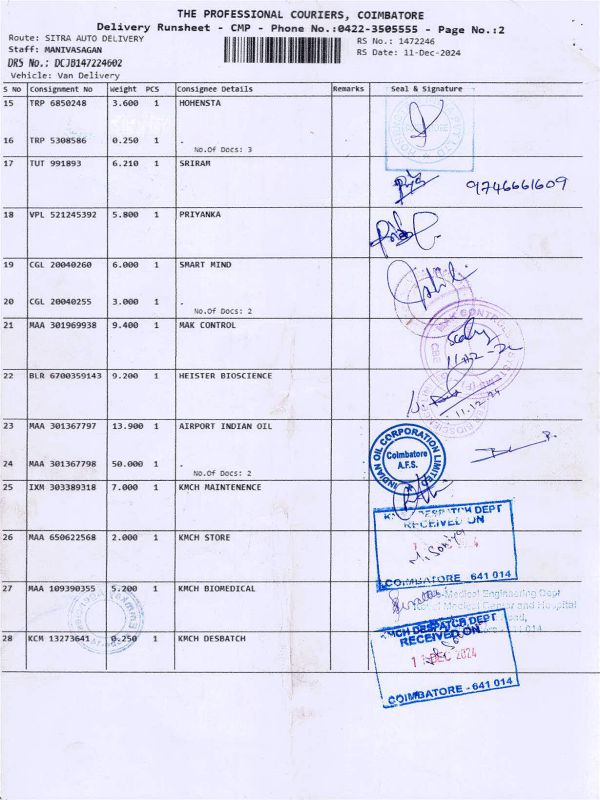 THE PROFESSIONAL COURIERS, COIMBATORE
Delivery Runsheet - CMP - Phone No.:0422-3505555 - Page No.:2
Route: SITRA AUTO DELIVERY RS No.: 1472246
Staff: MANIVASAGAN RS Date: 11-Dec-2024
DRS No.: DCJB147224602
Vehicle: Van Delivery
S No Consignment No Weight PCS Consignee Details Remarks Seal & Signature
15 TRP 6850248 3.600 1 HOHENSTA
16 TRP 5308586 0.250 1 .
No.Of Docs: 3
17 TUT 991893 6.210 1 SRIRAM
9746661609
18 VPL 521245392 5.800 1 PRIYANKA
19 CGL 20040260 6.000 1 SMART MIND
20 CGL 20040255 3.000 1 .
No.Of Docs: 2
21 MAA 301969938 9.400 1 MAK CONTROL
MAK CONTROLS
22 BLR 6700359143 9.200 1 HEISTER BIOSCIENCE
11.12.24
23 MAA 301367797 13.900 1 AIRPORT INDIAN OIL
INDIAN OIL CORPORATION LIMITED
Coimbatore
A.F.S.
24 MAA 301367798 50.000 1 .
No.Of Docs: 2
25 IXM 303389318 7.000 1 KMCH MAINTENENCE
KMCH DESPATCH DEPT
RECEIVED ON
26 MAA 650622568 2.000 1 KMCH STORE
COIMBATORE - 641 014
27 MAA 109390355 5.200 1 KMCH BIOMEDICAL
-Medical Engineering Dept
Medical Center and Hospital
641 014
28 KCM 13273641 0.250 1 KMCH DESBATCH
KMCH DESPATCH DEPT
RECEIVED ON
11 DEC 2024
COIMBATORE - 641 014